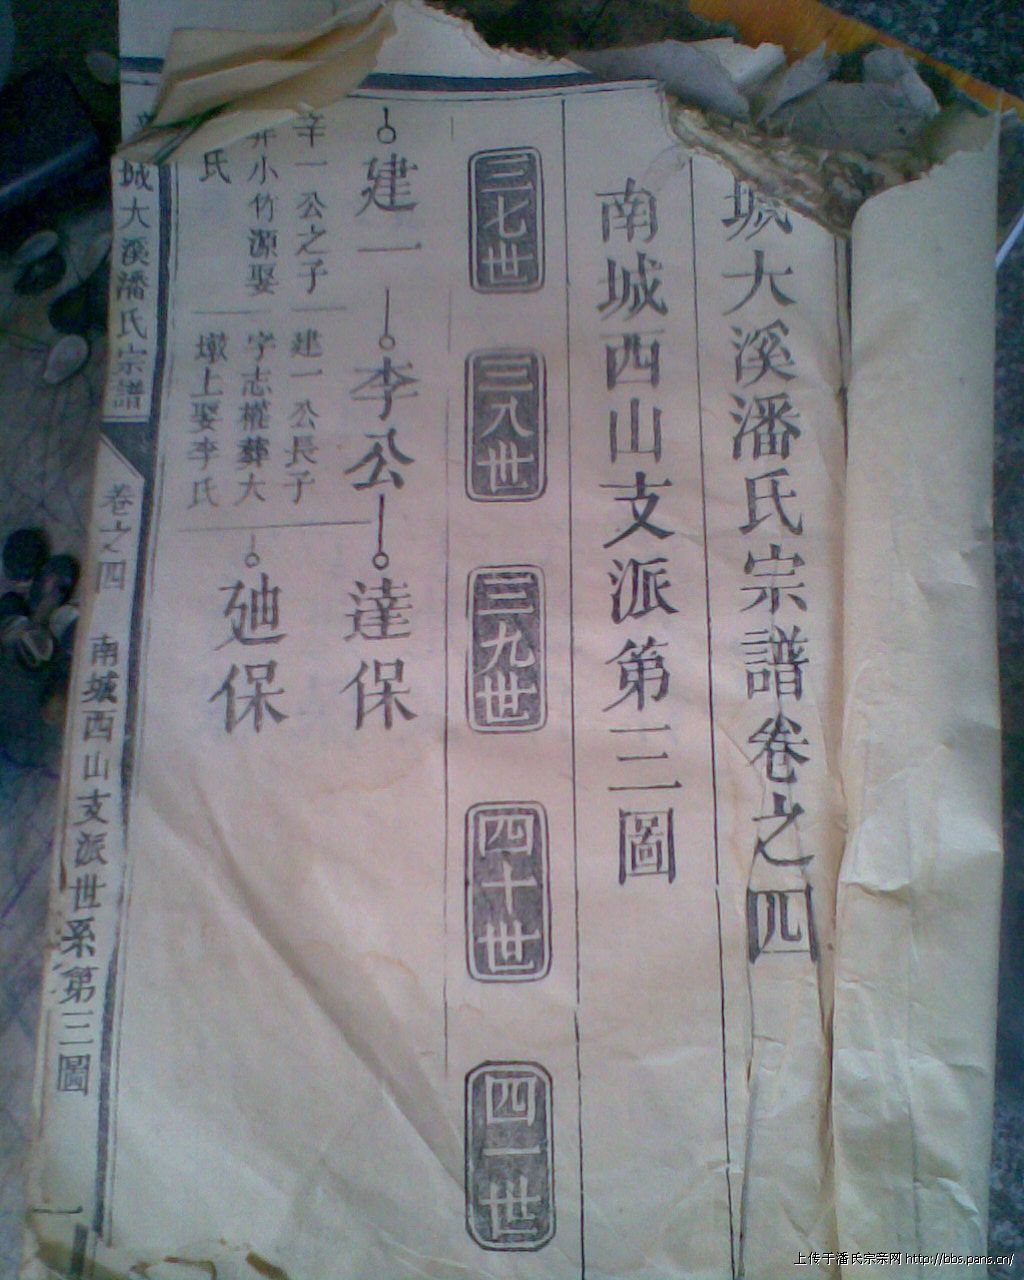 城大溪潘氏宗譜卷之四
南城西山支派第三圖
三七世
三八世
三九世
四十世
四一世
建一
李公
達保
辛一公之子
葬小竹源娶
氏
建一公長子
字志權葬大
墩上娶李氏
廸保
城大溪潘氏宗譜
卷之四
南城西山支派世系第三圖
一
上传于潘氏宗亲网 http://bbs.pans.cn/